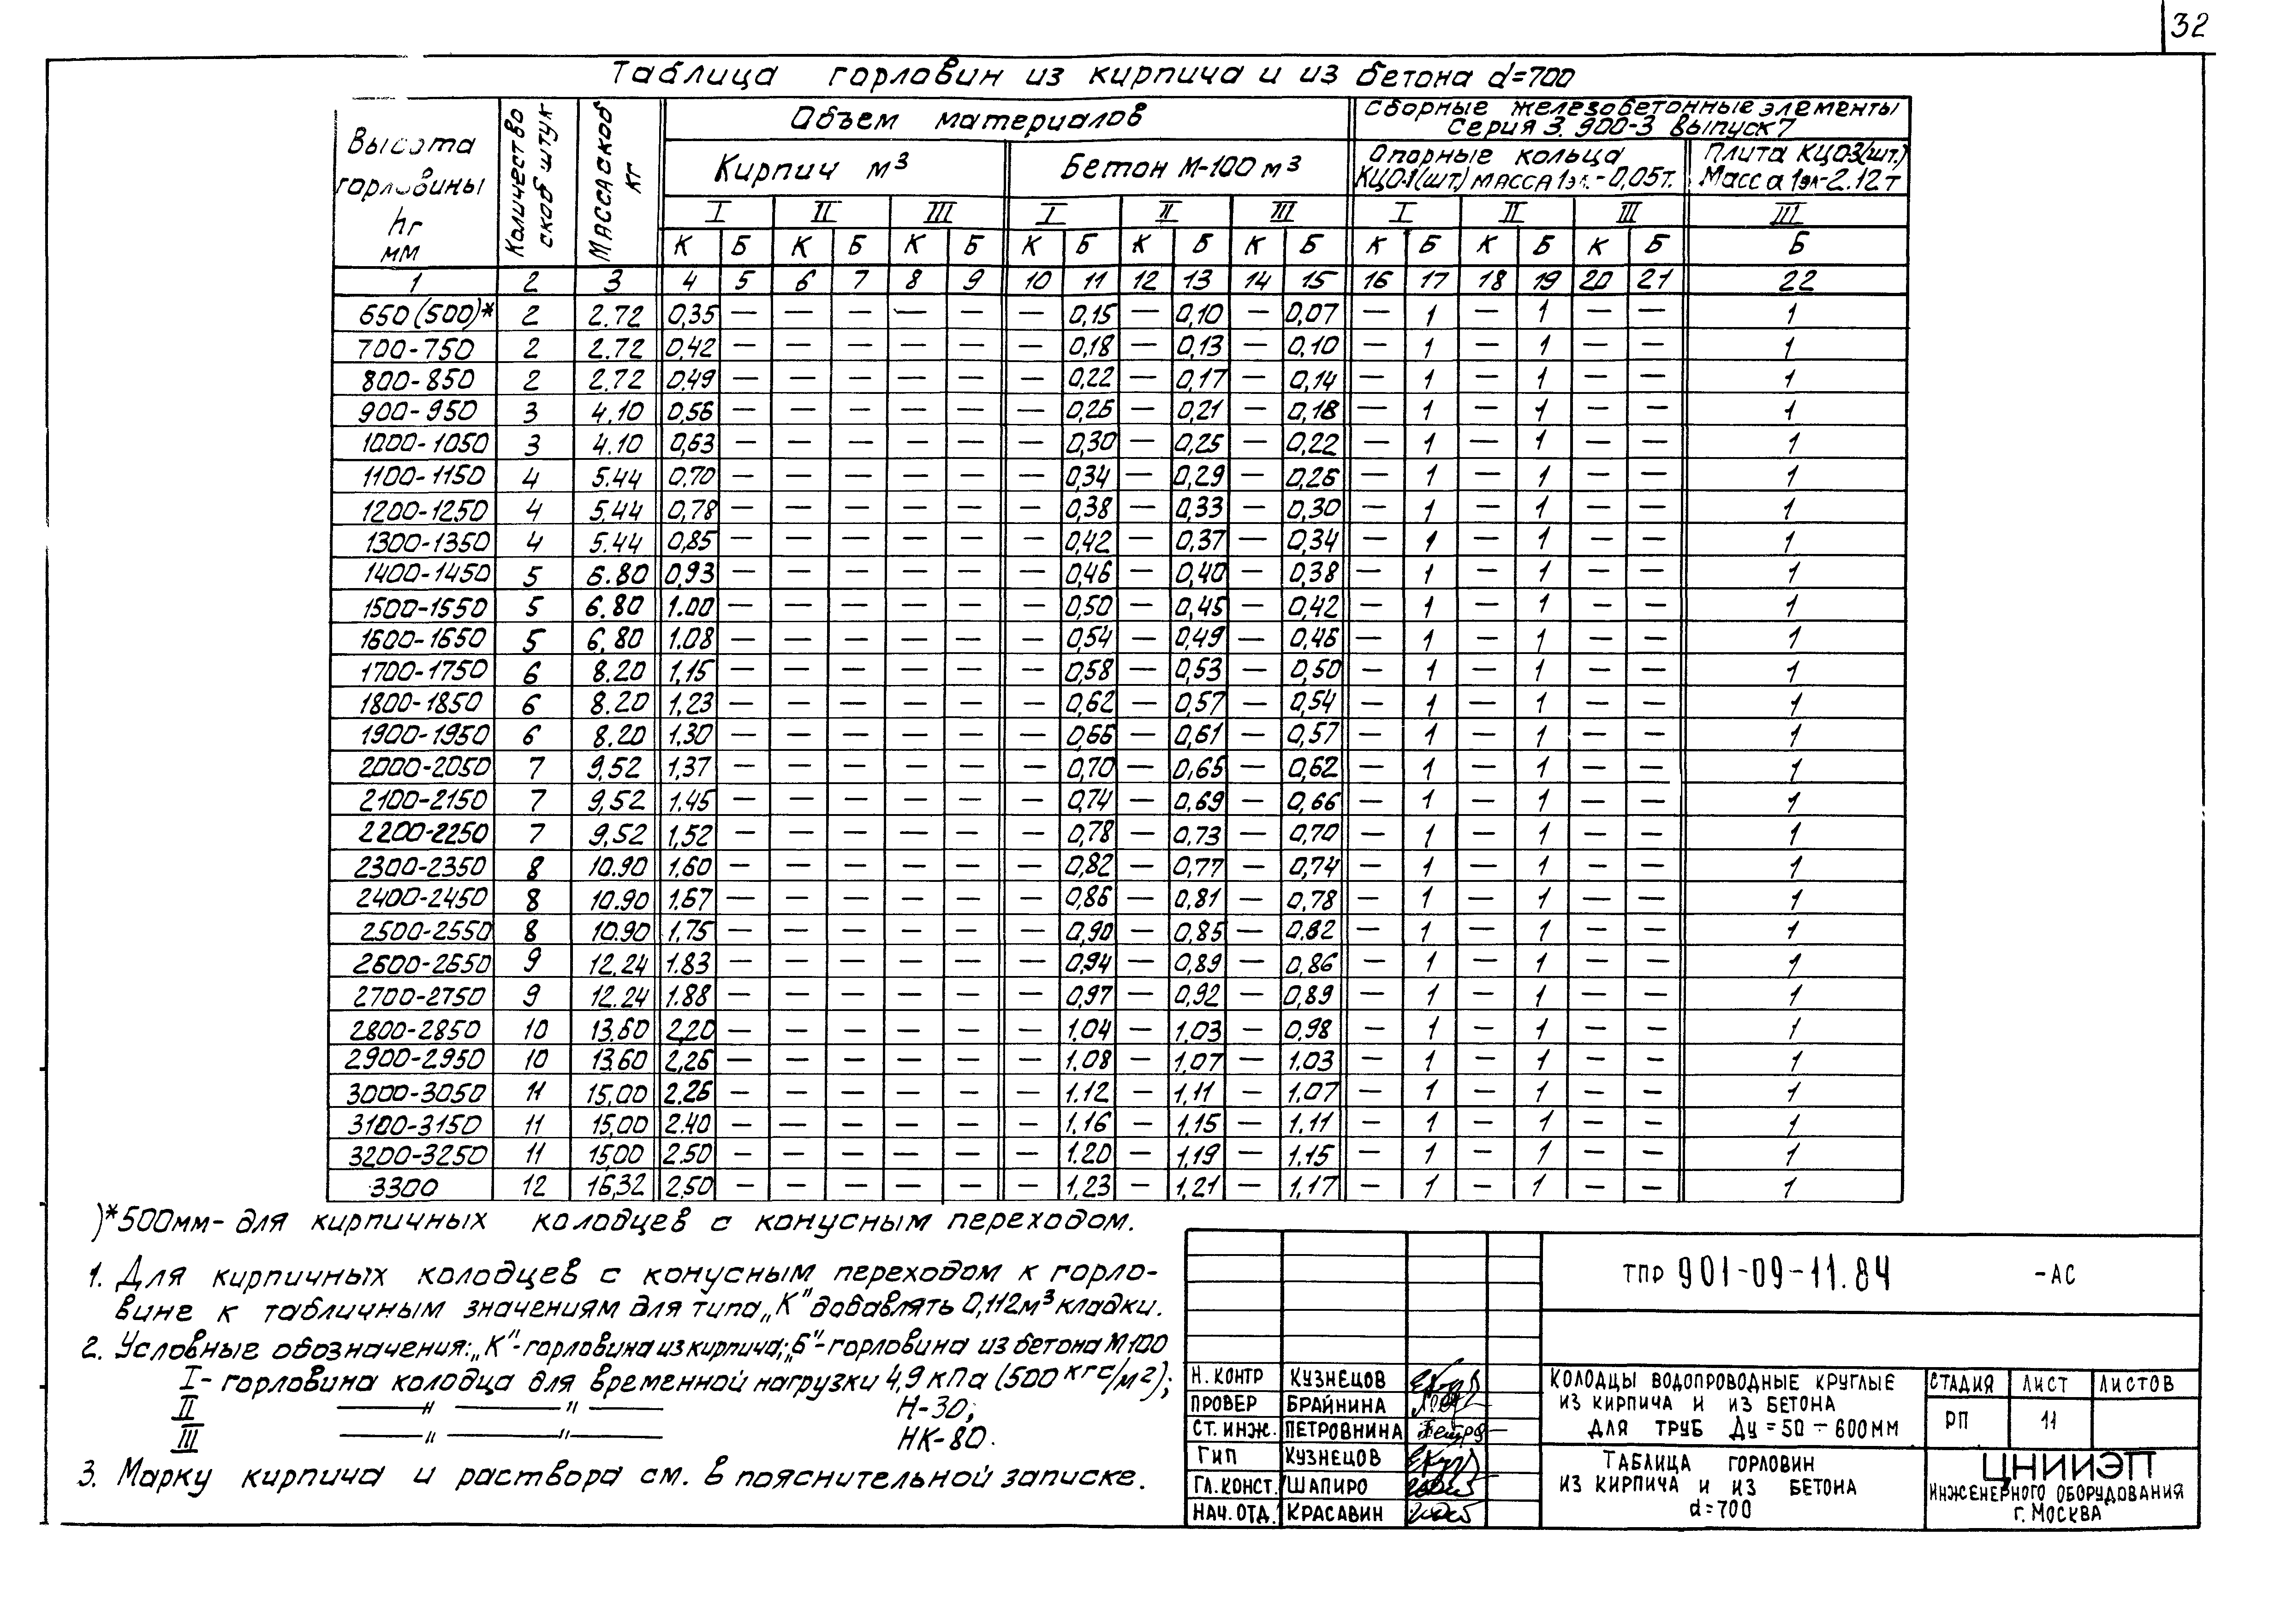 32
Таблица горловин из кирпича и из бетона d=700
Высота горловины hг мм
Количество скоб штук
Масса скоб кг
Объем материалов
Сборные железобетонные элементы
серия 3.900-3 выпуск 7
Кирпич м³
Бетон М-100 м³
Опорные кольца
КЦО-1(шт.) масса 1эл.-0,05т.
Плита КЦО3(шт.)
Масса 1эл-2.12т
I II III I II III I II III III
К Б К Б К Б К Б К Б К Б К Б К Б К Б Б
1 2 3 4 5 6 7 8 9 10 11 12 13 14 15 16 17 18 19 20 21 22
650(500)* 2 2.72 0,35 — — — — — — 0,15 — 0,10 — 0,07 — 1 — 1 — — 1
700-750 2 2.72 0,42 — — — — — — 0,18 — 0,13 — 0,10 — 1 — 1 — — 1
800-850 2 2.72 0,49 — — — — — — 0,22 — 0,17 — 0,14 — 1 — 1 — — 1
900-950 3 4.10 0,56 — — — — — — 0,26 — 0,21 — 0,18 — 1 — 1 — — 1
1000-1050 3 4.10 0,63 — — — — — — 0,30 — 0,25 — 0,22 — 1 — 1 — — 1
1100-1150 4 5.44 0,70 — — — — — — 0,34 — 0,29 — 0,26 — 1 — 1 — — 1
1200-1250 4 5.44 0,78 — — — — — — 0,38 — 0,33 — 0,30 — 1 — 1 — — 1
1300-1350 4 5.44 0,85 — — — — — — 0,42 — 0,37 — 0,34 — 1 — 1 — — 1
1400-1450 5 6.80 0,93 — — — — — — 0,46 — 0,40 — 0,38 — 1 — 1 — — 1
1500-1550 5 6.80 1.00 — — — — — — 0,50 — 0,45 — 0,42 — 1 — 1 — — 1
1600-1650 5 6.80 1.08 — — — — — — 0,54 — 0,49 — 0,46 — 1 — 1 — — 1
1700-1750 6 8.20 1,15 — — — — — — 0,58 — 0,53 — 0,50 — 1 — 1 — — 1
1800-1850 6 8.20 1,23 — — — — — — 0,62 — 0,57 — 0,54 — 1 — 1 — — 1
1900-1950 6 8.20 1,30 — — — — — — 0,66 — 0,61 — 0,57 — 1 — 1 — — 1
2000-2050 7 9,52 1,37 — — — — — — 0,70 — 0,65 — 0,62 — 1 — 1 — — 1
2100-2150 7 9,52 1.45 — — — — — — 0,74 — 0,69 — 0,66 — 1 — 1 — — 1
2200-2250 7 9,52 1,52 — — — — — — 0,78 — 0,73 — 0,70 — 1 — 1 — — 1
2300-2350 8 10.90 1.60 — — — — — — 0,82 — 0,77 — 0,74 — 1 — 1 — — 1
2400-2450 8 10.90 1.67 — — — — — — 0,86 — 0,81 — 0,78 — 1 — 1 — — 1
2500-2550 8 10.90 1.75 — — — — — — 0,90 — 0,85 — 0,82 — 1 — 1 — — 1
2600-2650 9 12.24 1.83 — — — — — — 0,94 — 0,89 — 0,86 — 1 — 1 — — 1
2700-2750 9 12.24 1.88 — — — — — — 0,97 — 0,92 — 0,89 — 1 — 1 — — 1
2800-2850 10 13.60 2,20 — — — — — — 1.04 — 1.03 — 0,98 — 1 — 1 — — 1
2900-2950 10 13.60 2,26 — — — — — — 1.08 — 1,07 — 1.03 — 1 — 1 — — 1
3000-3050 11 15,00 2.26 — — — — — — 1.12 — 1,11 — 1,07 — 1 — 1 — — 1
3100-3150 11 15,00 2.40 — — — — — — 1.16 — 1.15 — 1.11 — 1 — 1 — — 1
3200-3250 11 15,00 2.50 — — — — — — 1.20 — 1,19 — 1.15 — 1 — 1 — — 1
3300 12 16,32 2,50 — — — — — — 1,23 — 1,21 — 1,17 — 1 — 1 — — 1
)*500мм- для кирпичных колодцев с конусным переходом.
1. Для кирпичных колодцев с конусным переходом к горло-
вине к табличным значениям для типа „К" добавлять 0,112м³ кладки.
2. Условные обозначения: „К"-горловина из кирпича; „Б"-горловина из бетона М100
I- горловина колодца для временной нагрузки 4,9 кПа (500 кгс/м²);
II —"— —"— Н-30;
III —"— —"— НК-80.
3. Марку кирпича и раствора см. в пояснительной записке.
ТПР 901-09-11.84 -АС
Н. КОНТР КУЗНЕЦОВ
ПРОВЕР БРАЙНИНА
СТ. ИНЖ. ПЕТРОВНИНА
ГИП КУЗНЕЦОВ
ГЛ. КОНСТ. ШАПИРО
НАЧ. ОТД. КРАСАВИН
КОЛОДЦЫ ВОДОПРОВОДНЫЕ КРУГЛЫЕ
ИЗ КИРПИЧА И ИЗ БЕТОНА
ДЛЯ ТРУБ Ду=50÷600ММ
СТАДИЯ ЛИСТ ЛИСТОВ
РП 11
ТАБЛИЦА ГОРЛОВИН
ИЗ КИРПИЧА И ИЗ БЕТОНА
d=700
ЦНИИЭП
ИНЖЕНЕРНОГО ОБОРУДОВАНИЯ
Г. МОСКВА